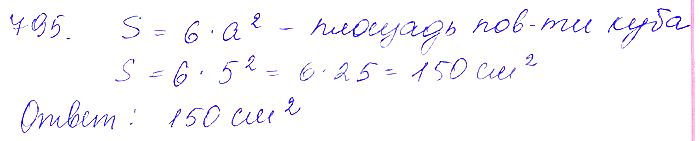 795. S = 6 · a² – площадь пов-ти куба
S = 6 · 5² = 6 · 25 = 150 см²
Ответ: 150 см²